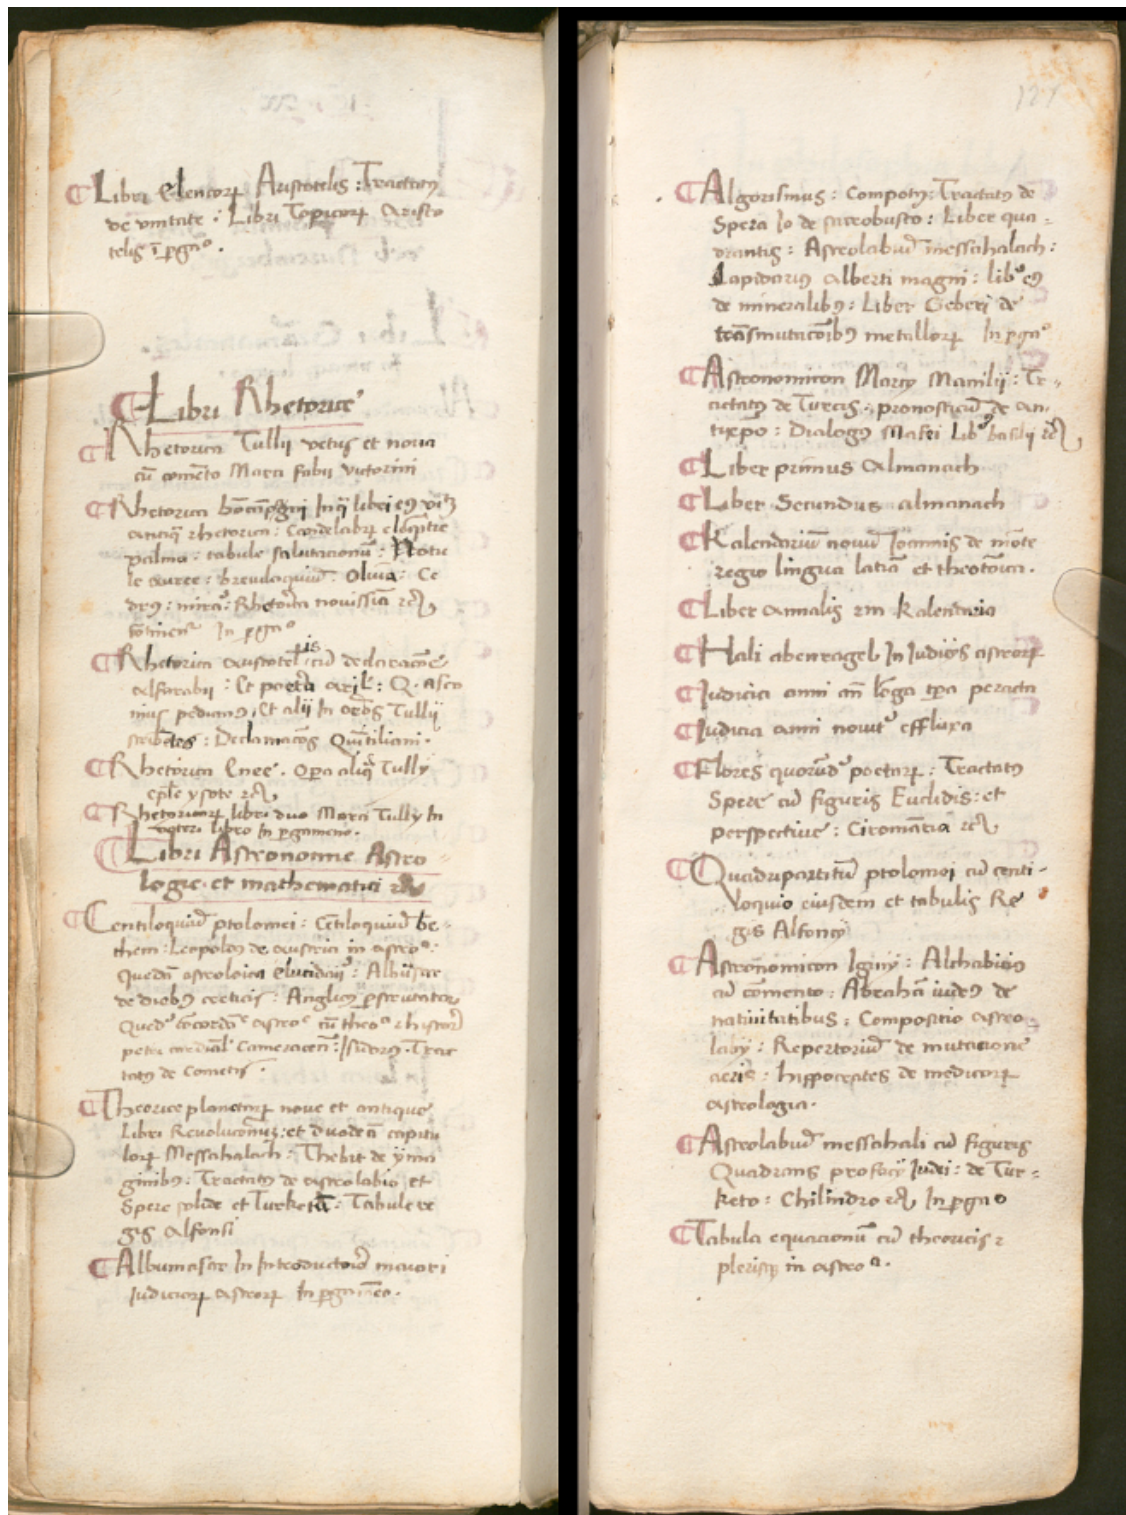 Libri Elencorꝝ Aristotelis : Tractatꝯ
de vnitate : Libri Topicorꝝ Aristo
telis ī ꝑgaᵒ .
Libri Rhetorice
Rhetorica Tullij vetus et noua
cū comēto Marci fabij victorini
Rhetorica In libri eꝯ
antiqͥ rhetorica : Candelabrꝝ
palma : tabule salutacionū : Notu
le auree : breuiloquiū : Oliua : Ce
drꝯ : mirra : Rhetorica nouissīa ꝛcͣ
In ꝑgaᵒ
Rhetorica Aristotelis cū declaracōne
Alfarabij : Et poetria aril̓ : Q . Asco
nius pedianꝯ : Et alij In Tullij
scribētes : Declamacōes Quītiliani .
Rhetorica Enee . Opa aliqͣ Tullij
ꝛcͣ
Rhetoricorꝝ libri duo Marci Tullij In
veteri libro In ꝑgameno .
Libri Astronomie Astro
logie et mathematici ꝛcͣ
Centiloquiū ptolomei : Cētiloquiū be
them : Leopoldꝯ de austria in astroᵃ :
Quedā astroloica : Albusar
de diebꝯ creticis : Anglicꝯ ꝑscrutator
Quedᵃ astroᵉ cū theoᵃ
petri cardīal̓ Cameracen̄ : Isidorꝯ . Trac
tatꝯ de Cometis .
Theorice planetarꝝ noue et antique
Libri Reuolucōnuꝫ : et duodecī capitu
lorꝝ Messahalach : Thebit de yma
ginibꝯ : Tractatꝯ de astrolabio et
Spere solide et Turketū : Tabule re
gis Alfonsi
Albumasar In Introductoriū maiori
Iudiciorꝝ astrorꝝ In ꝑgamēo .
127
Algorismus : Compotꝯ : Tractatꝯ de
Spera Io de sacrobusto : Liber qua
drantis : Astrolabiū messahalach :
Lapidariꝯ Alberti magni : libᵒ eꝯ
de mineralibꝯ : Liber Geberi de
trāsmutacōibꝯ metallorꝝ In ꝑgaᵒ
Astronomicon Marcy Manilij : Tr
actatꝯ de Turcis : pronosticū de an
tixpo : Dialogꝯ Libᵒ basilij ꝛcͣ
Liber primus Almanach
Liber Secundus almanach
Kalendariū nouū Ioannis de mōte
regio lingua latīa et theotōica .
Liber annalis Kalendario
Hali abenragel In Iudicijs astrorꝝ
Iudicia anni peracta
Iudicia anni effluxa
Flores quorūdᵃ poetarꝝ : Tractatꝯ
Spere cū figuris Euclidis : et
perspectiue : Ciromātia ꝛcͣ
Quadripartitū ptolomei cū centi
loquio eiusdem et tabulis Re
gis Alfoncij
Astronomicon Iginij : Alchabiciꝯ
cū cōmento : Abrahā iudeꝯ de
natiuitatibus : Compositio astro
labij : Repertoriū de mutacione
aeris : hippocrates de medicorꝝ
astrologia .
Astrolabiū messahali cū figuris
Quadrans profacij Iudei : de Tur
keto : Chilindro ꝛcͣ In ꝑgao
Tabula equacionū cū theoricis ꝛ
plerisqꝫ in astroᵃ .